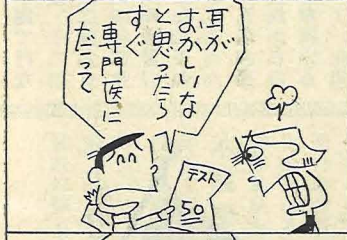 耳が
おかしいな
と思ったら
すぐ
専門医に
だって
テスト
50